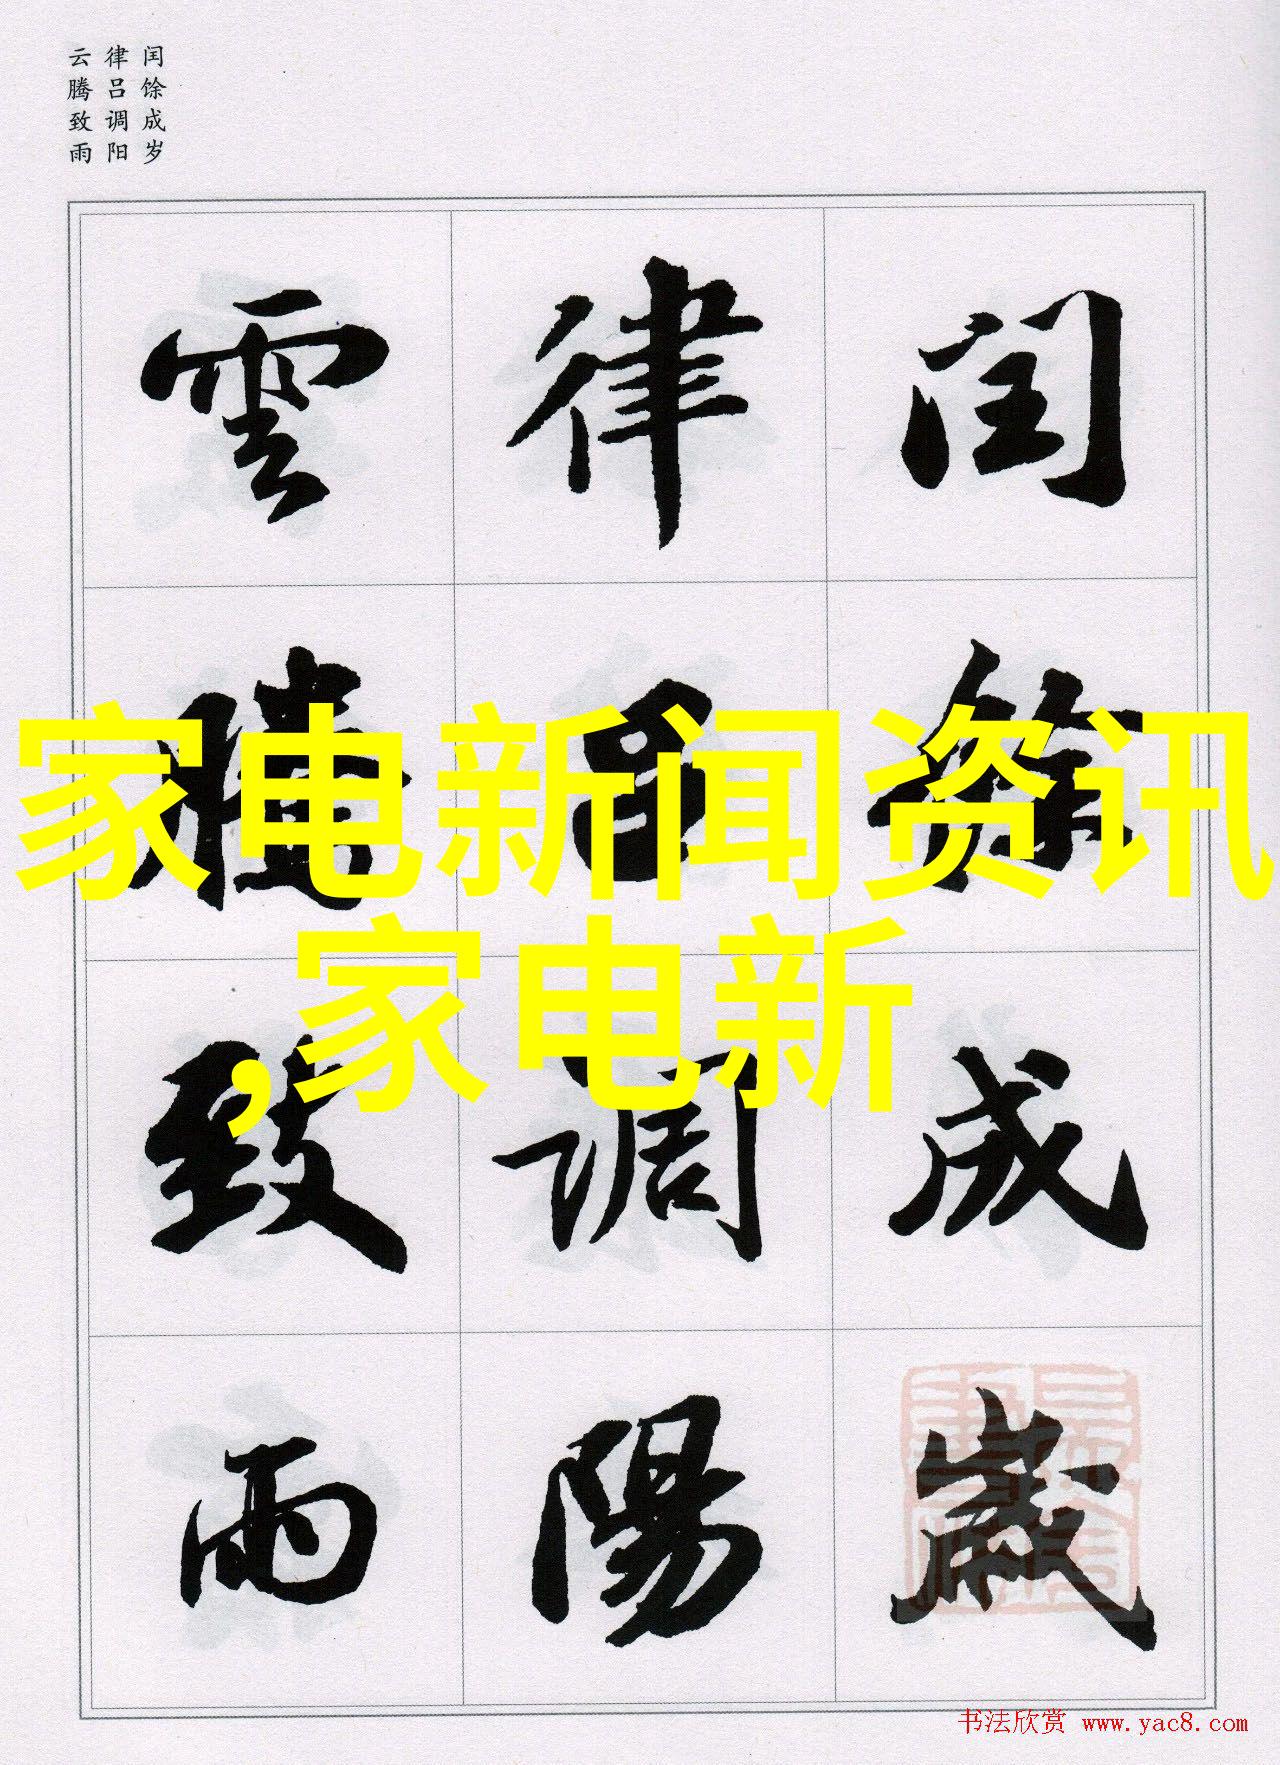 闰馀成岁
律吕调阳
云腾致雨
閏餘成歲
律吕調陽
雲騰致雨
家电新闻资讯
,家电新
书法欣赏 www.yac8.com